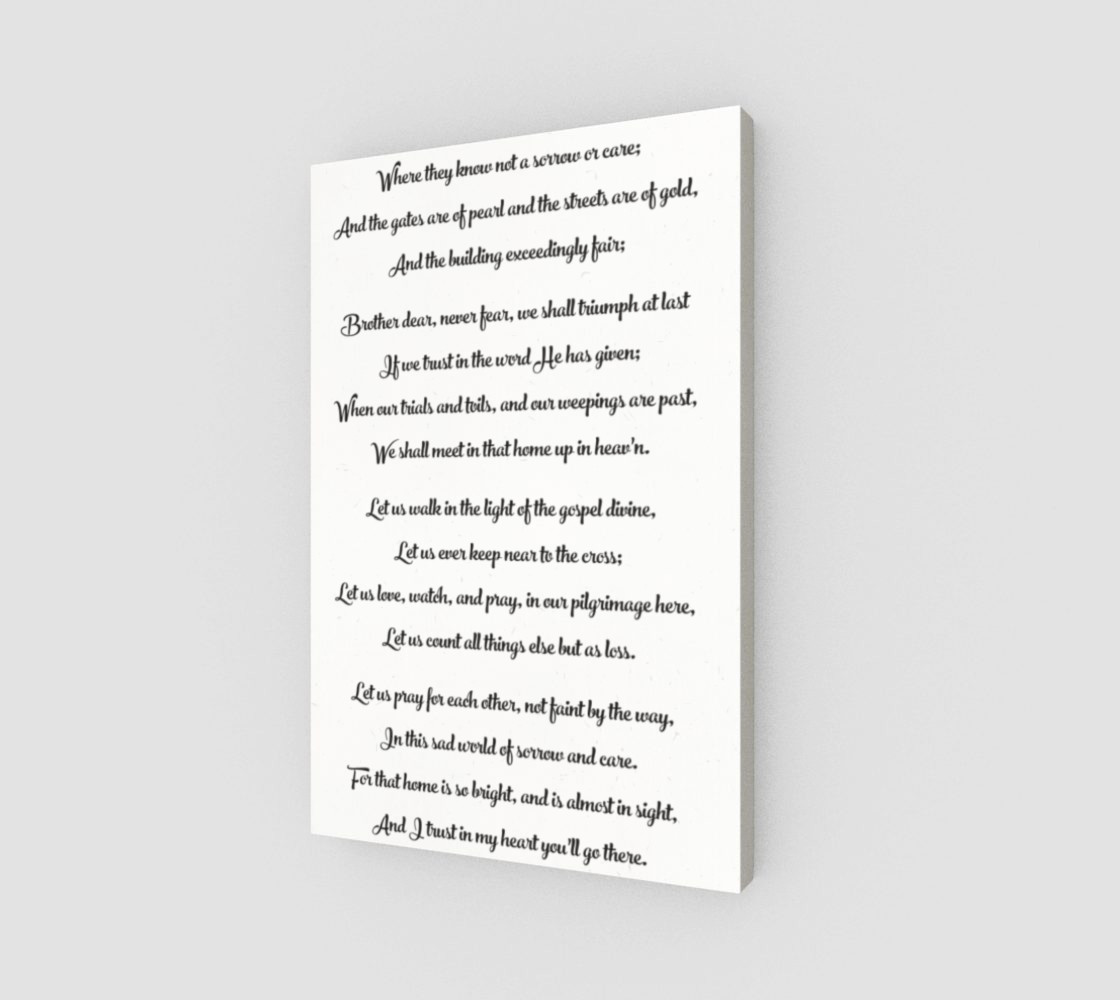 Where they know not a sorrow or care;
And the gates are of pearl and the streets are of gold,
And the building exceedingly fair;
Brother dear, never fear, we shall triumph at last
If we trust in the word He has given;
When our trials and toils, and our weepings are past,
We shall meet in that home up in heav'n.
Let us walk in the light of the gospel divine,
Let us ever keep near to the cross;
Let us love, watch, and pray, in our pilgrimage here,
Let us count all things else but as loss.
Let us pray for each other, not faint by the way,
In this sad world of sorrow and care.
For that home is so bright, and is almost in sight,
And I trust in my heart you'll go there.